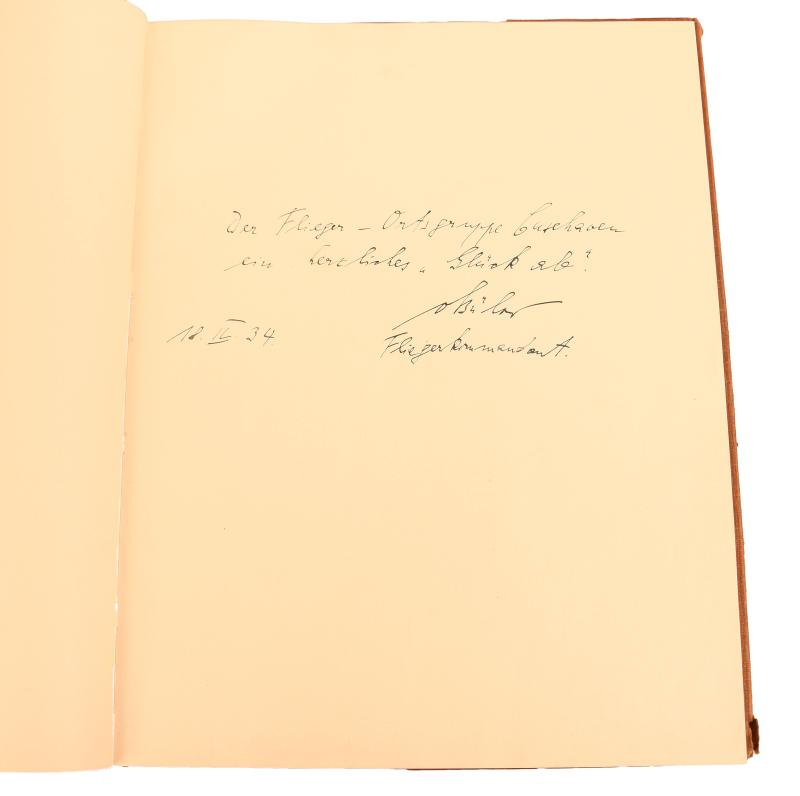 Der Flieger – Ortsgruppe Cuxhaven
ein herzliches „Glück ab“.
18. IV 34.
Fliegerkommandant.